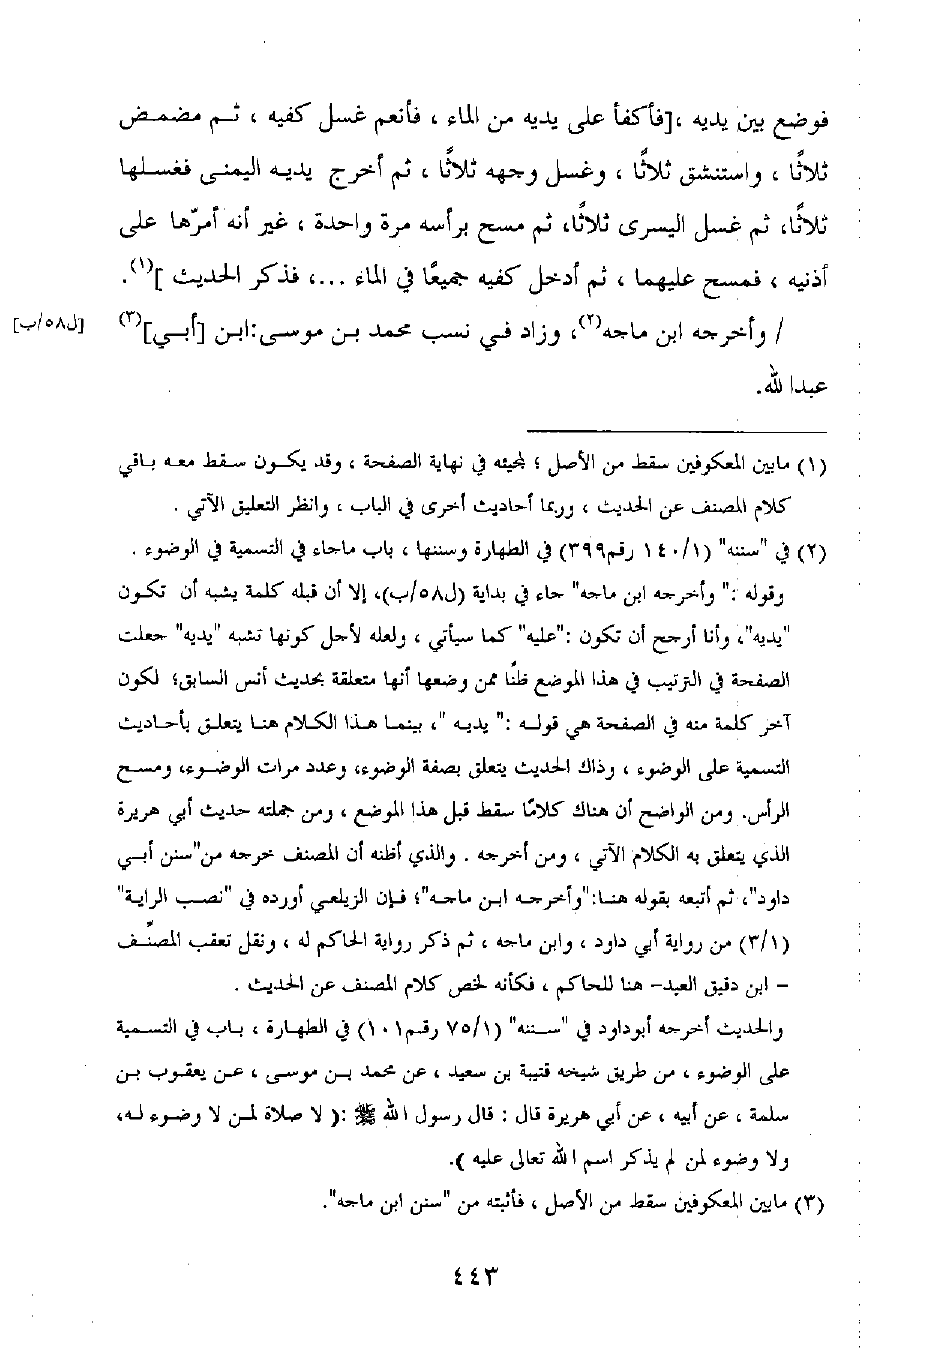 فوضع بين يديه ،[فأكفأ على يديه من الماء ، فأنعم غسل كفيه ، ثـم مضمـض
ثلاثًا ، واستنشق ثلاثًا ، وغسل وجهه ثلاثًا ، ثم أخرج يديـه اليمنـى فغسـلها
ثلاثًا، ثم غسل اليسرى ثلاثًا، ثم مسح برأسه مرة واحدة ، غير أنه أمرّها على
أذنيه ، فمسح عليهما ، ثم أدخل كفيه جميعًا في الماء ...، فذكر الحديث ](١).
/ وأخرجه ابن ماجه(٢)، وزاد فـي نسب محمد بـن موسـى:ابـن [أبـي](٣) [ل٥٨/ب]
عبدا لله.
(١) مابين المعكوفين سقط من الأصل ؛ لمجيئه في نهاية الصفحة ، وقد يكـون سـقط معـه بـاقي
كلام المصنف عن الحديث ، وربما أحاديث أخرى في الباب ، وانظر التعليق الآتي .
(٢) في "سننه" (١/ ١٤٠ رقم٣٩٩) في الطهارة وسننها ، باب ماجاء في التسمية في الوضوء .
وقوله :" وأخرجه ابن ماجه" جاء في بداية (ل٥٨/ب)، إلا أن قبله كلمة يشبه أن تكـون
"يديه"، وأنا أرجح أن تكون :"عليه" كما سيأتي ، ولعله لأجل كونها تشبه "يديه" جعلت
الصفحة في الترتيب في هذا الموضع ظنًا ممن وضعها أنها متعلقة بحديث أنس السابق؛ لكون
آخر كلمة منه في الصفحة هي قولـه :" يديـه "، بينمـا هـذا الكلام هنـا يتعلـق بأحـاديث
التسمية على الوضوء ، وذاك الحديث يتعلق بصفة الوضوء، وعدد مرات الوضـوء، ومسـح
الرأس. ومن الواضح أن هناك كلامًا سقط قبل هذا الموضع ، ومن جملته حديث أبي هريرة
الذي يتعلق به الكلام الآتي ، ومن أخرجه . والذي أظنه أن المصنف خرجه من"سنن أبـي
داود"، ثم أتبعه بقوله هنـا:"وأخرجـه ابـن ماجـه"؛ فـإن الزيلعي أورده في "نصـب الرايـة"
(٣/١) من رواية أبي داود ، وابن ماجه ، ثم ذكر رواية الحاكم له ، ونقل تعقب المصنِّـف
- ابن دقيق العيد- هنا للحاكم ، فكأنه لخص كلام المصنف عن الحديث .
والحديث أخرجه أبوداود في "سـننه" (٧٥/١ رقم١٠١) في الطهارة ، بـاب في التسـمية
على الوضوء ، من طريق شيخه قتيبة بن سعيد ، عن محمد بـن موسـى ، عـن يعقوب بـن
سلمة ، عن أبيه ، عن أبي هريرة قال : قال رسول الله ﷺ :( لا صلاة لمـن لا وضـوء لـه،
ولا وضوء لمن لم يذكر اسم الله تعالى عليه ).
(٣) مابين المعكوفين سقط من الأصل ، فأثبته من "سنن ابن ماجه".
٤٤٣